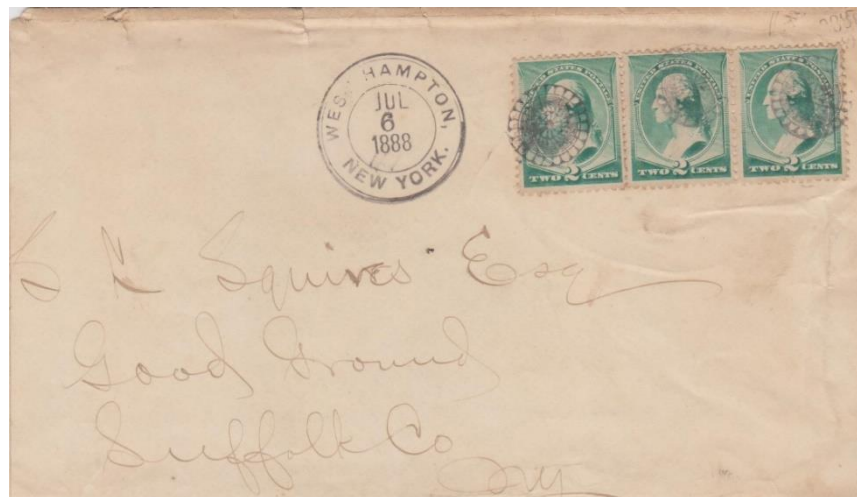 WESTHAMPTON,
JUL
6
1888
NEW YORK.
UNITED STATES POSTAGE
TWO 2 CENTS
UNITED STATES POSTAGE
TWO 2 CENTS
UNITED STATES POSTAGE
TWO 2 CENTS
Squires Esq
Good Ground
Suffolk Co
NY